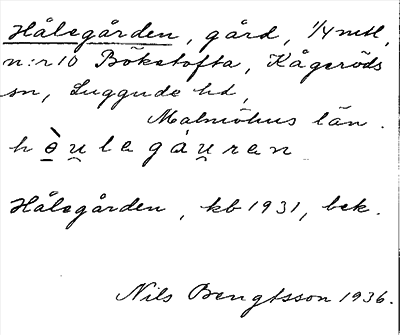 Hålsgården, gård, 1/4 mtl,
n:r 10 Bökstofta, Kågeröds
sn, Luggude hd,
Malmöhus län.
h ò̱ u̯ l e g á u̯ r e n
Hålsgården, kb 1931, bek.
Nils Bengtsson 1936.